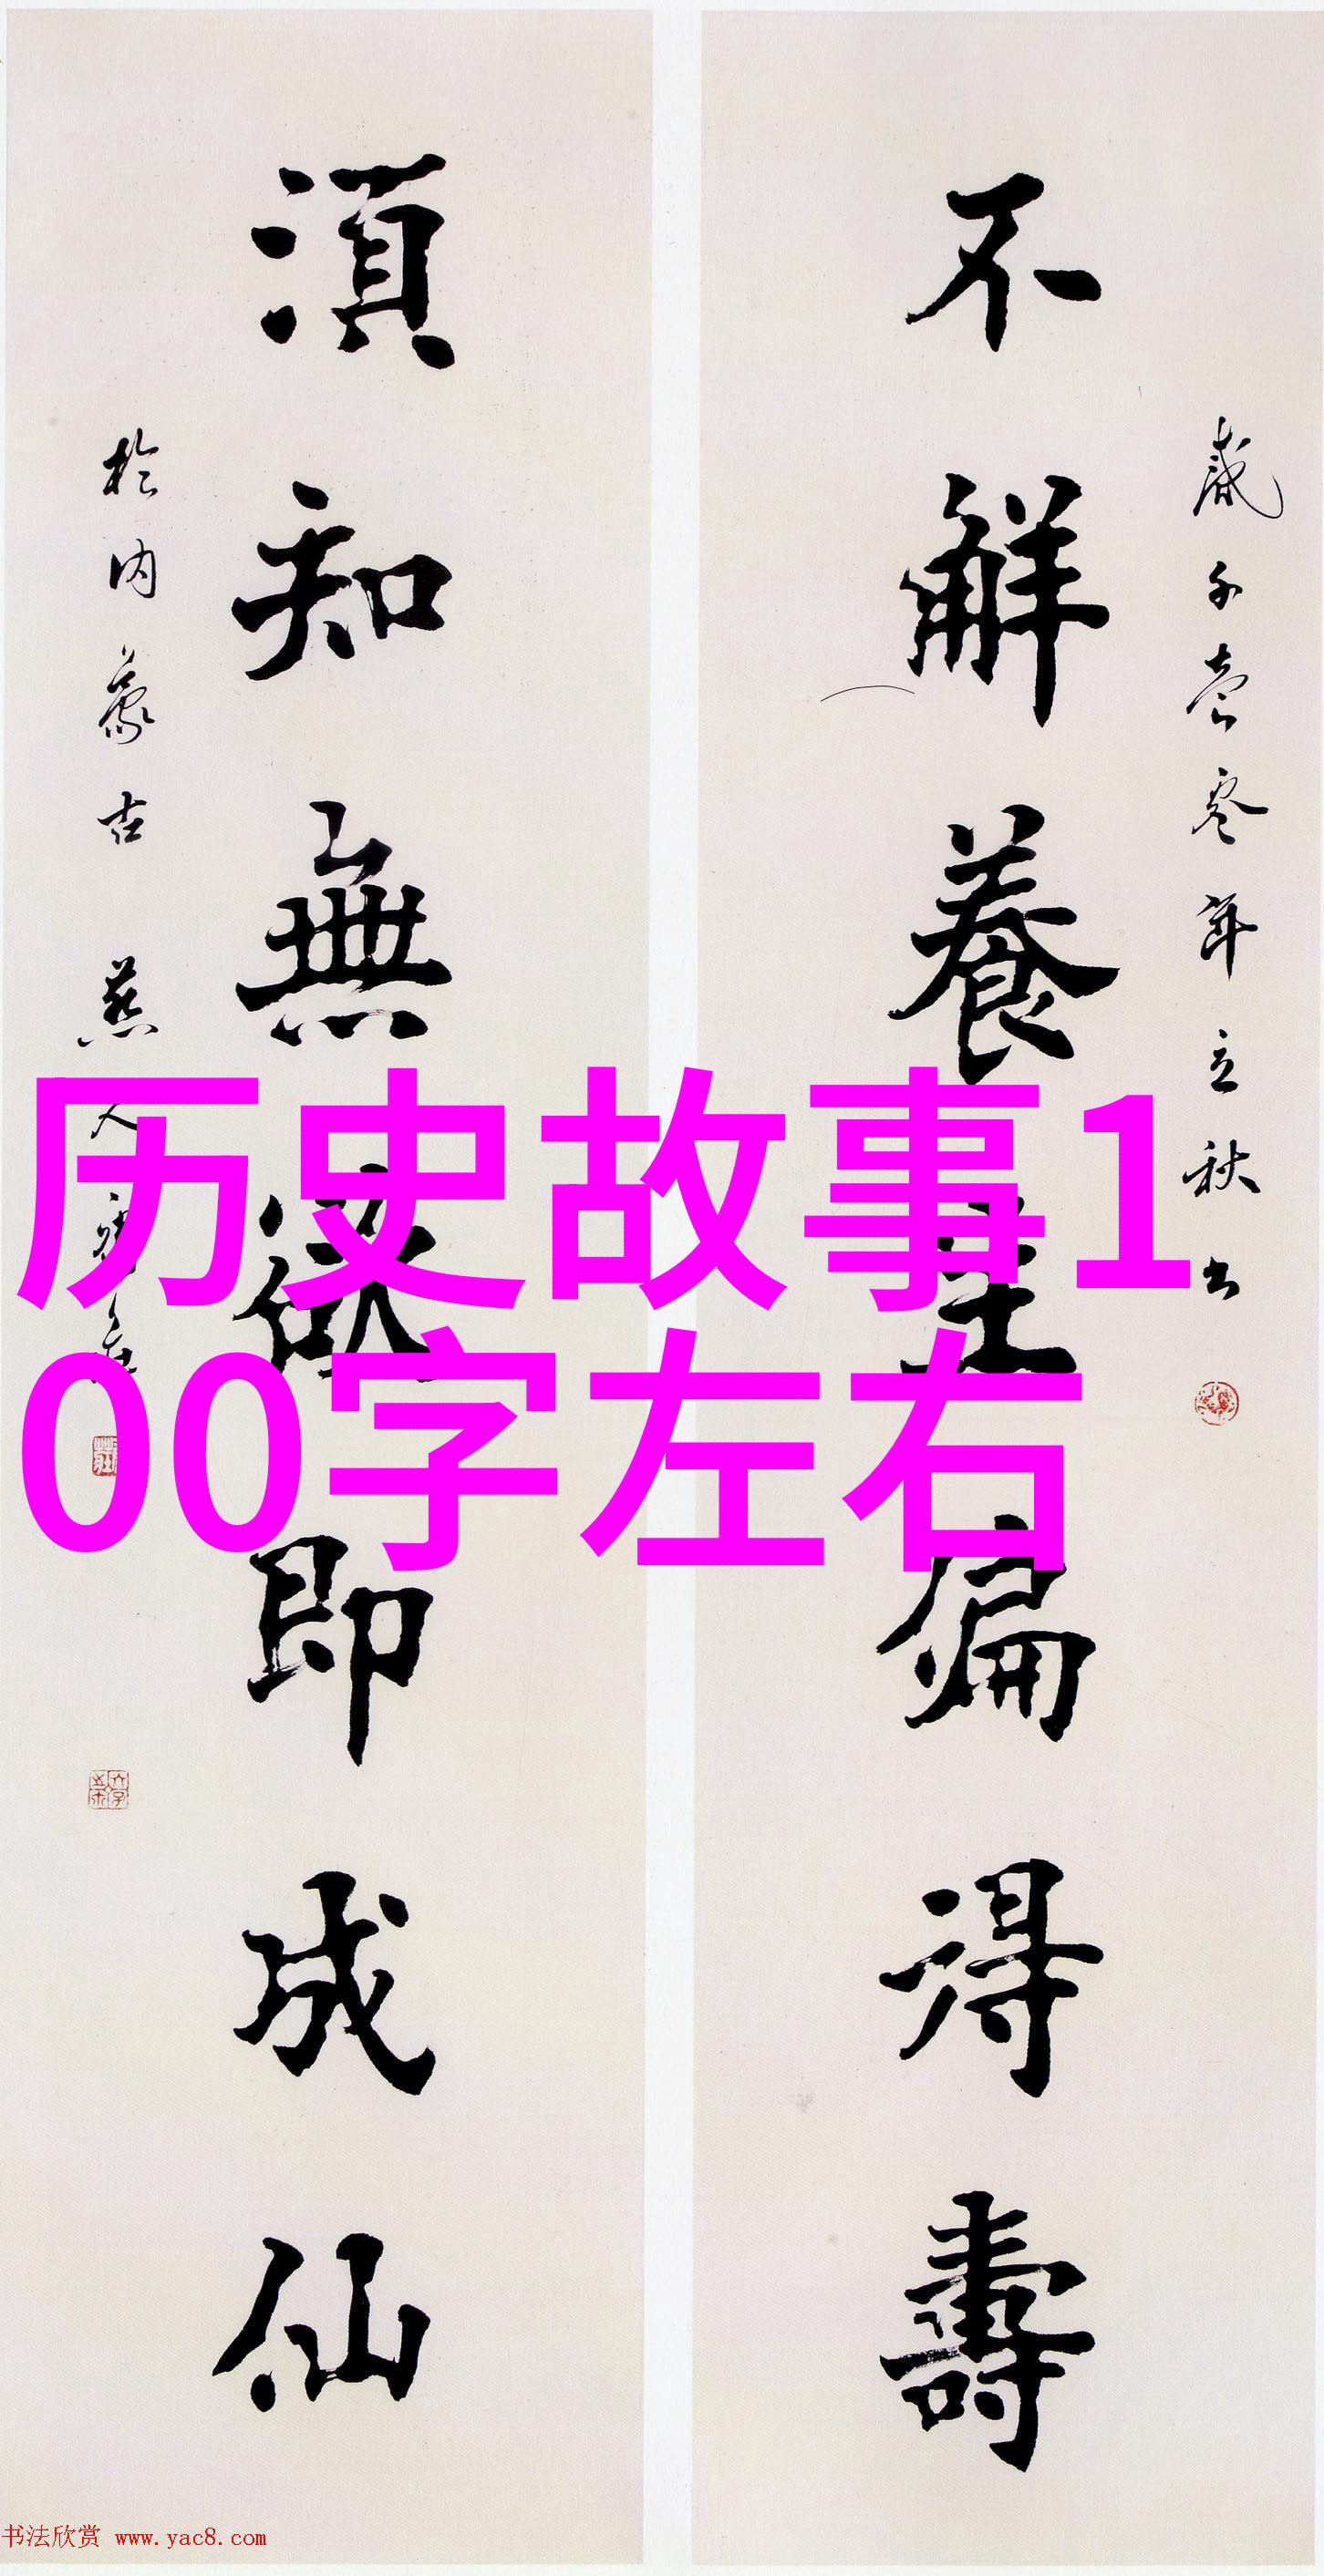 不解養生偏得壽
歲予壹零年立秋书
須知無欲即成仙
於内蒙古
燕人
历史故事1
00字左右
书法欣赏 www.yac8.com